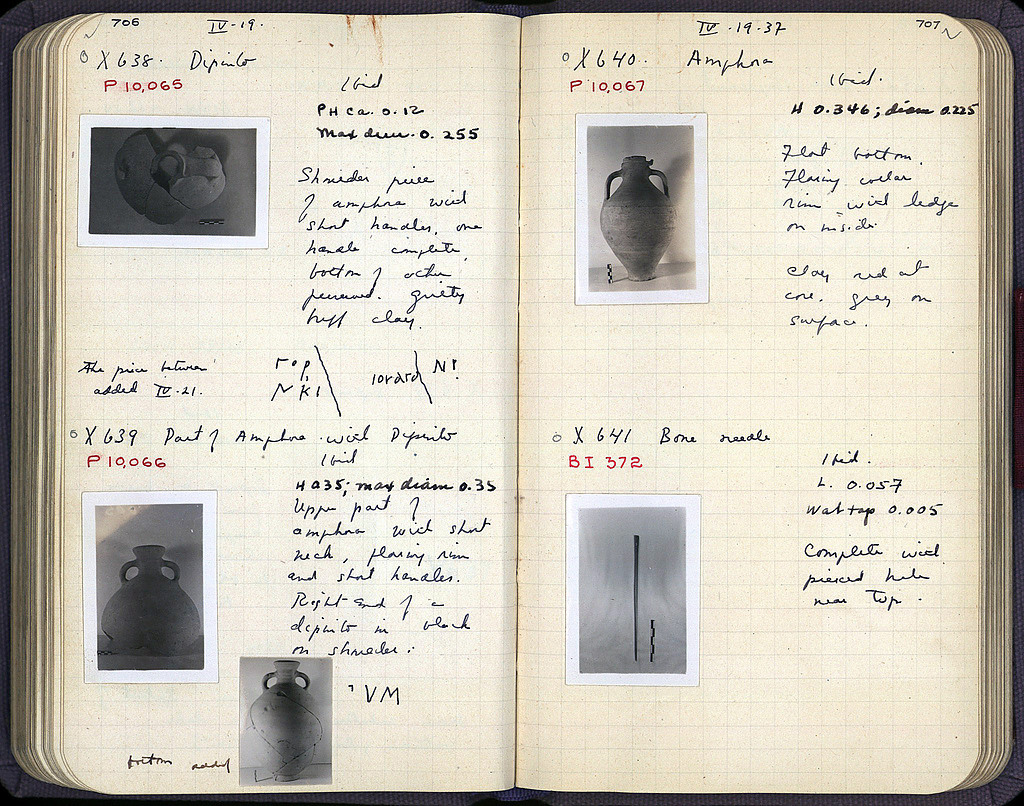 706
IV·19·
X 638. Dipinto
P 10,065
Ibid
PH ca. 0.12
Max diam. 0.255
Shoulder piece
of amphora with
short handles, one
handle complete,
bottom of other
preserved. gritty
buff clay.
The piece between
added IV·21.
X 639 Part of Amphora with Dipinto
P 10,066
Ibid
H 0.35; max diam 0.35
Upper part of
amphora with short
neck, flaring rim
and short handles.
Right end of a
dipinto in black
on shoulder:
VM
bottom added
IV·19·37
707
X 640. Amphora
P 10,067
Ibid.
H 0.346; diam 0.225
Flat bottom.
Flaring collar
rim with ledge
on inside.
Clay red at
core, grey on
surface.
X 641 Bone needle
BI 372
Ibid.
L. 0.057
W at top 0.005
Complete with
pierced hole
near top.